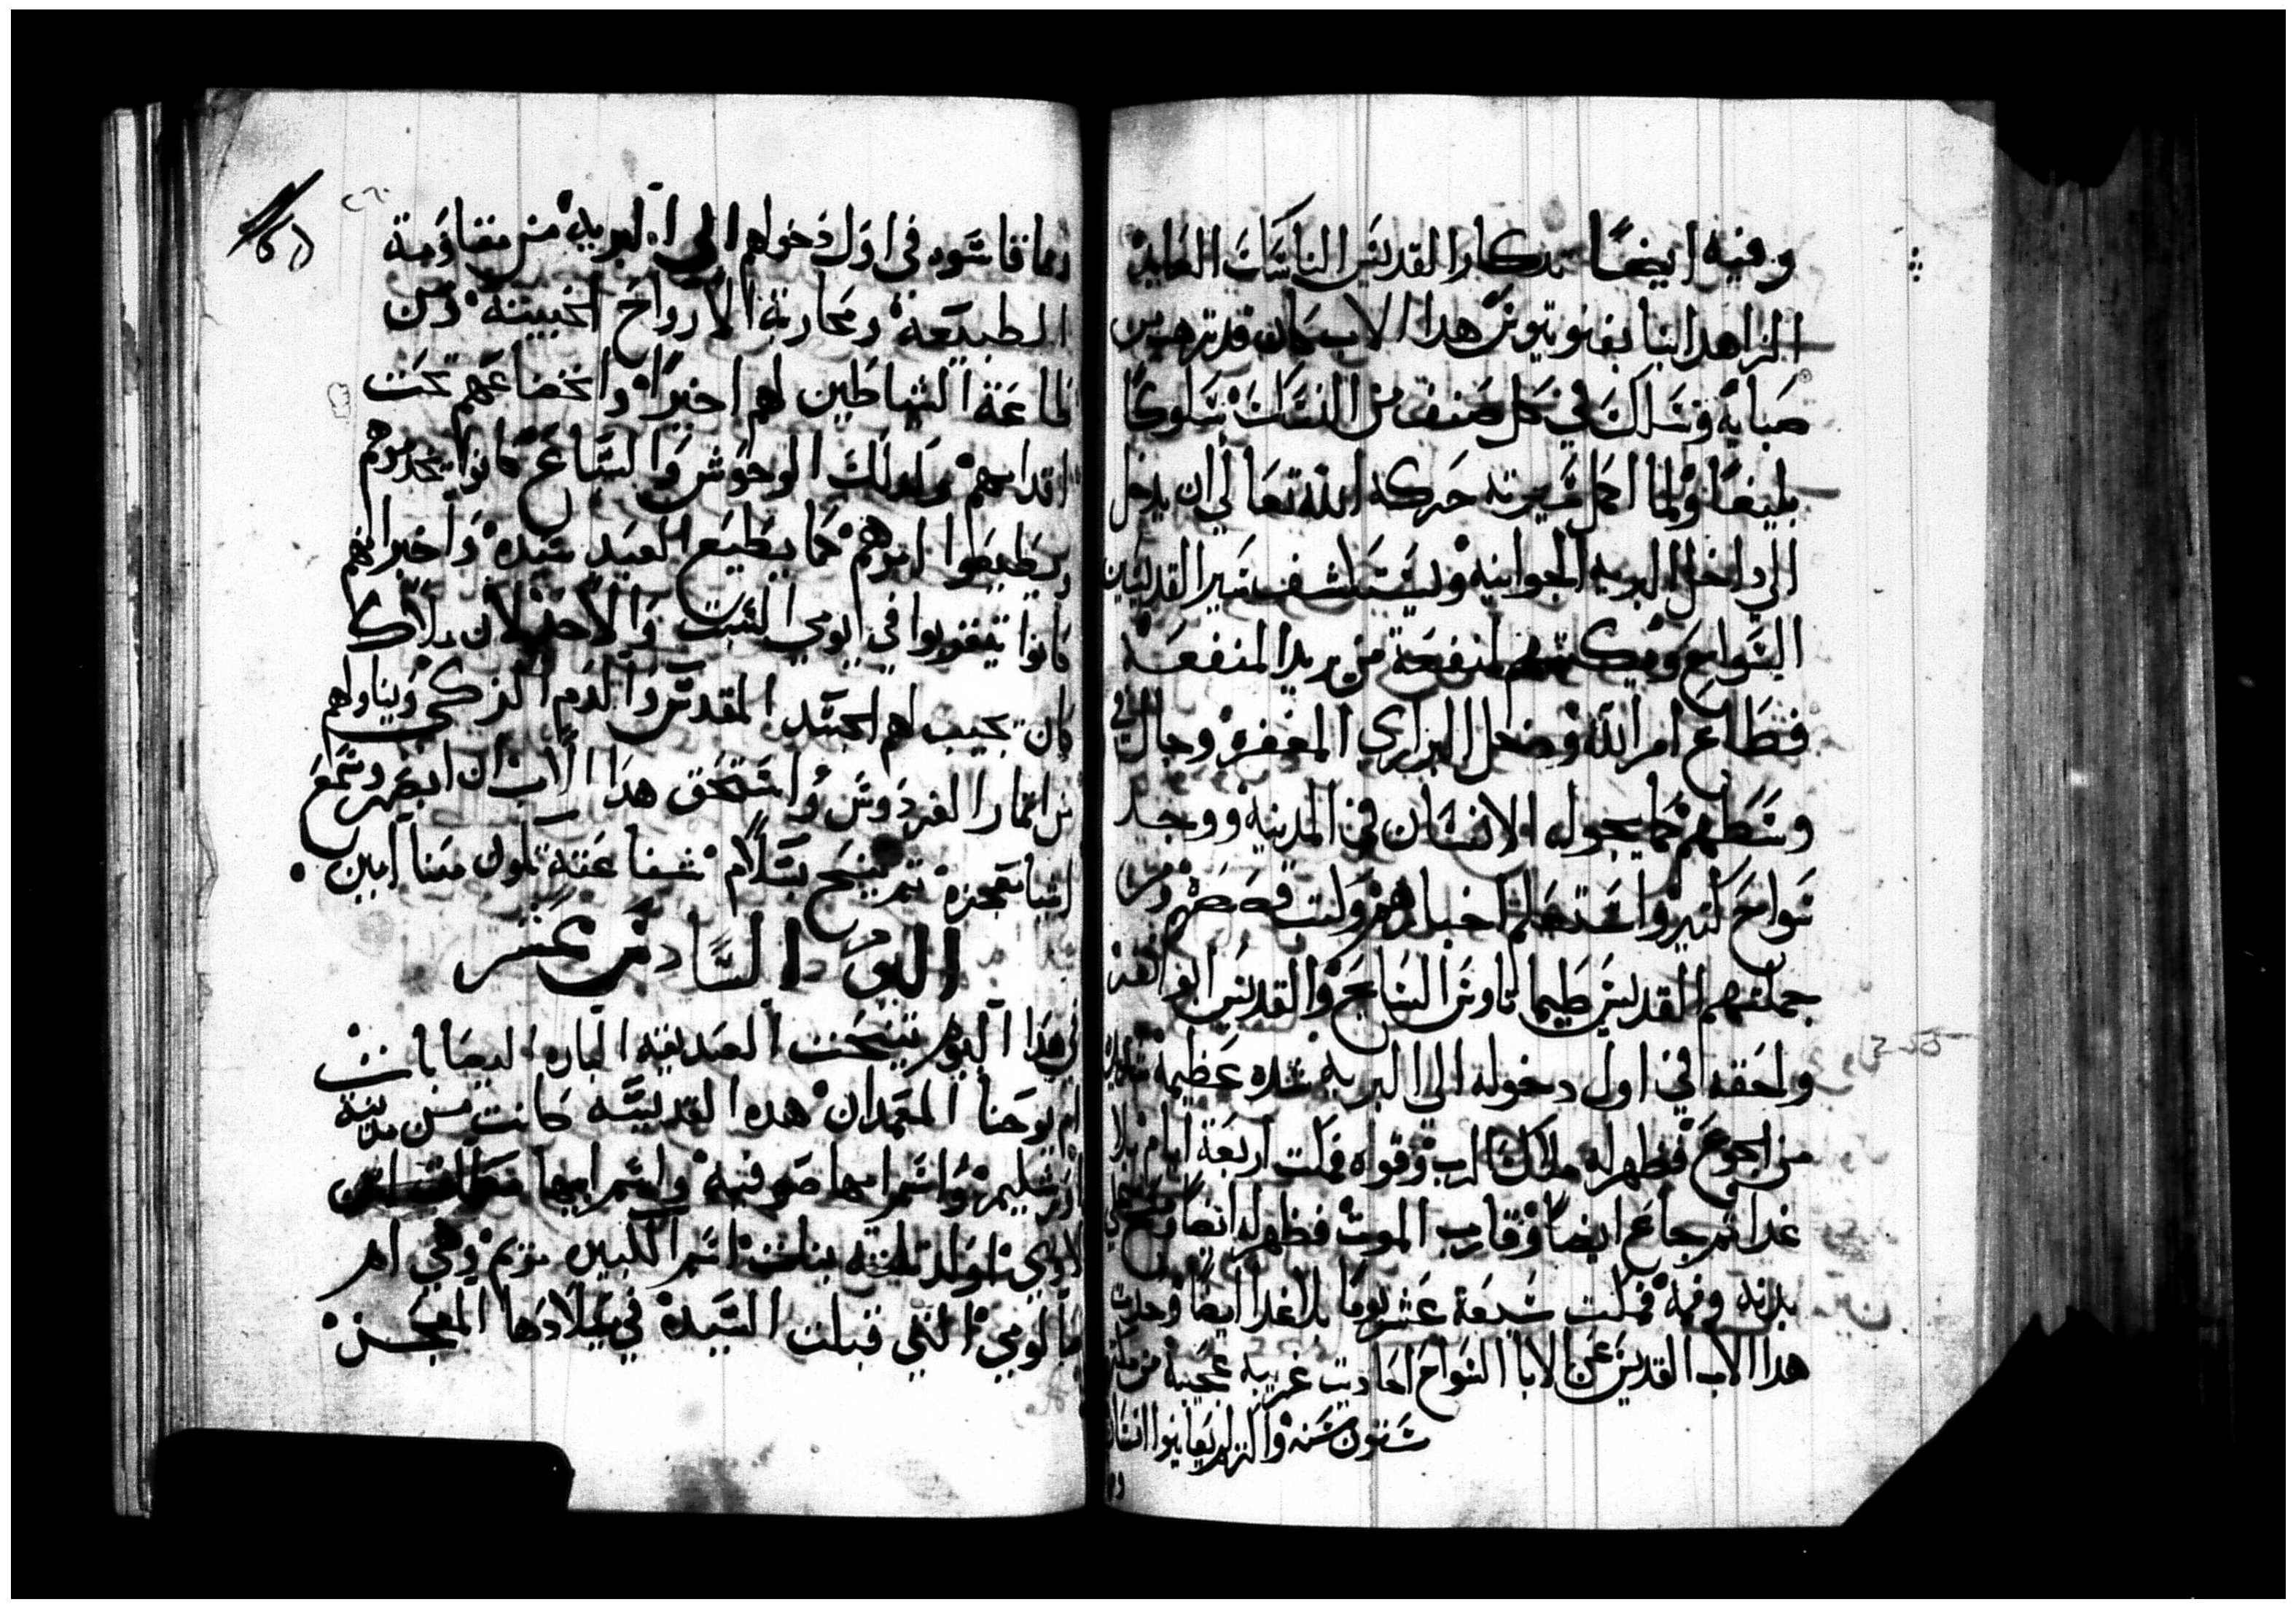 وفيه ايضًا تدكار القديس الناسك العابد
الزاهد انبا بفنوتيوس هدا الاب كان قد ترهب من
صباه وسلك في كل صنف من النسك سلوكًا
بليغًا ولما اكمل سيرته حركه الله تعالي ان يدخل
الي داخل البريه الجوانيه ويستكشف سير القديسين
السواح ويكتبهم لمنفعة من يريد المنفعه
فطاع امر الله ودخل البراري المقفره وجال في
وسطهم كما يجول الانسان في المدينه ووجد
سواح كتير واستعلم اخبارهم وكتب قصصهم ومن
جملتهم القديس طيماتاوس السايح والقديس ابو نفر
ولحقه في اول دخوله الي البريه شده عظيمه
من الجوع فظهر له ملاك الرب وقواه فمكت اربعة ايام بلا
غدا تم جاع ايضا وقارب الموت فظهر له ايضا ومسح علي
بدنه وفمه فمكت سبعة عشر يوما بلا غدا ايضا وحدت
هدا الاب القديس عن الابا السواح احاديت غريبه عجيبه من مكت
ستون سنه واكتر لم يعاينوا انسان
وما قاسوه في اول دخولهم الي البريه من مقاومة
الطبيعة ومحاربة الارواح الخبيته ومن
طاعة الشياطين لهم اخيرًا وانخضاعهم تحت
اقدامهم وكدلك الوحوش والسباع كانوا يخدموهم
ويطيعوا امرهم كما يطيع العبيد سيده واخبر انهم
كانوا يتقربوا في يومي السبت والاحد لان ملاك
كان يجيب لهم الجسد المقدس والدم الزكي ويناولهم
من اتمار الفردوس واستحق هدا الاب ان ابصر وسمع
اشيا معجزه تم تنيح بسلام شفاعته تكون معنا امين
اليوم السادس عشر
في هدا اليوم تنيحت الصديقه الباره اليصابات
ام يوحنا المعمدان هده القديسه كانت من مدينة
اورشليم واسم امها صوفيه واسم ابيها
لاوي اولد تلته بنات اسم الكبيره مريم وهي ام
سالومي التي قبلت السيده في ميلادها المعجز